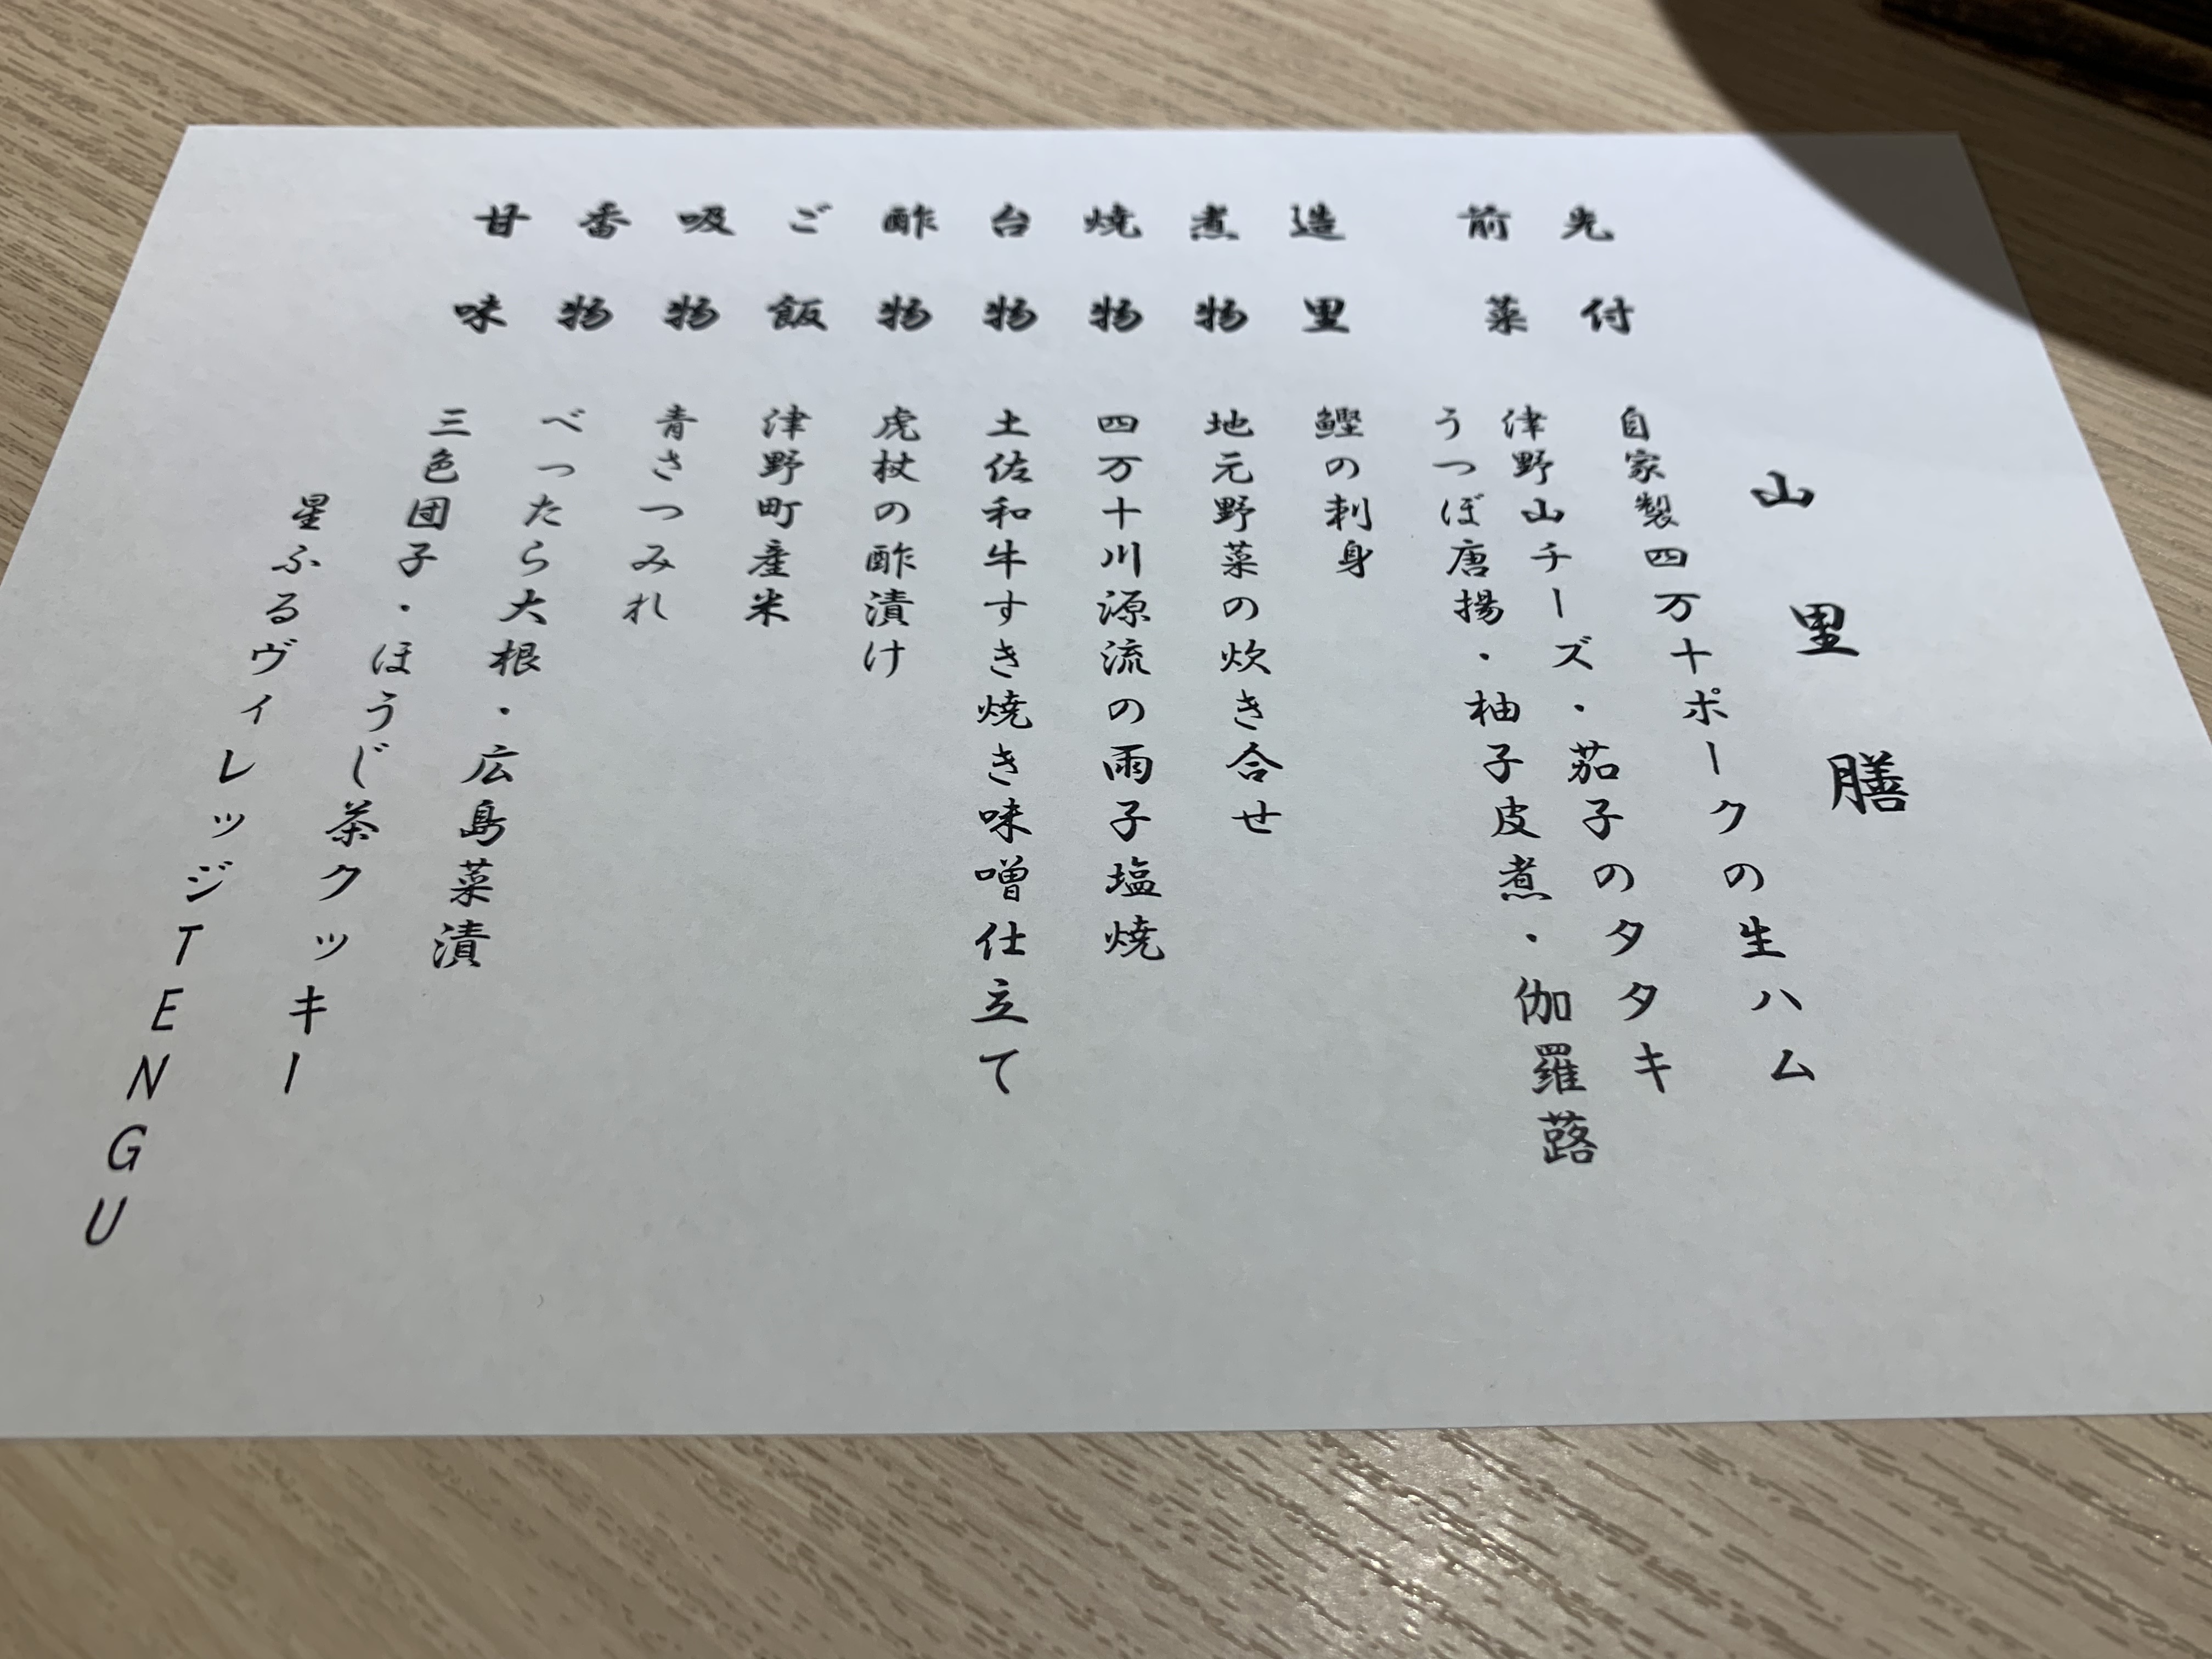 山里膳
先付 自家製四万十ポークの生ハム
前菜 津野山チーズ・茄子のタタキ
うつぼ唐揚・柚子皮煮・伽羅蕗
造里 鰹の刺身
煮物 地元野菜の炊き合せ
焼物 四万十川源流の雨子塩焼
台物 土佐和牛すき焼き味噌仕立て
酢物 虎杖の酢漬け
ご飯 津野町産米
吸物 青さつみれ
香物 べったら大根・広島菜漬
甘味 三色団子・ほうじ茶クッキー
星ふるヴィレッジTENGU